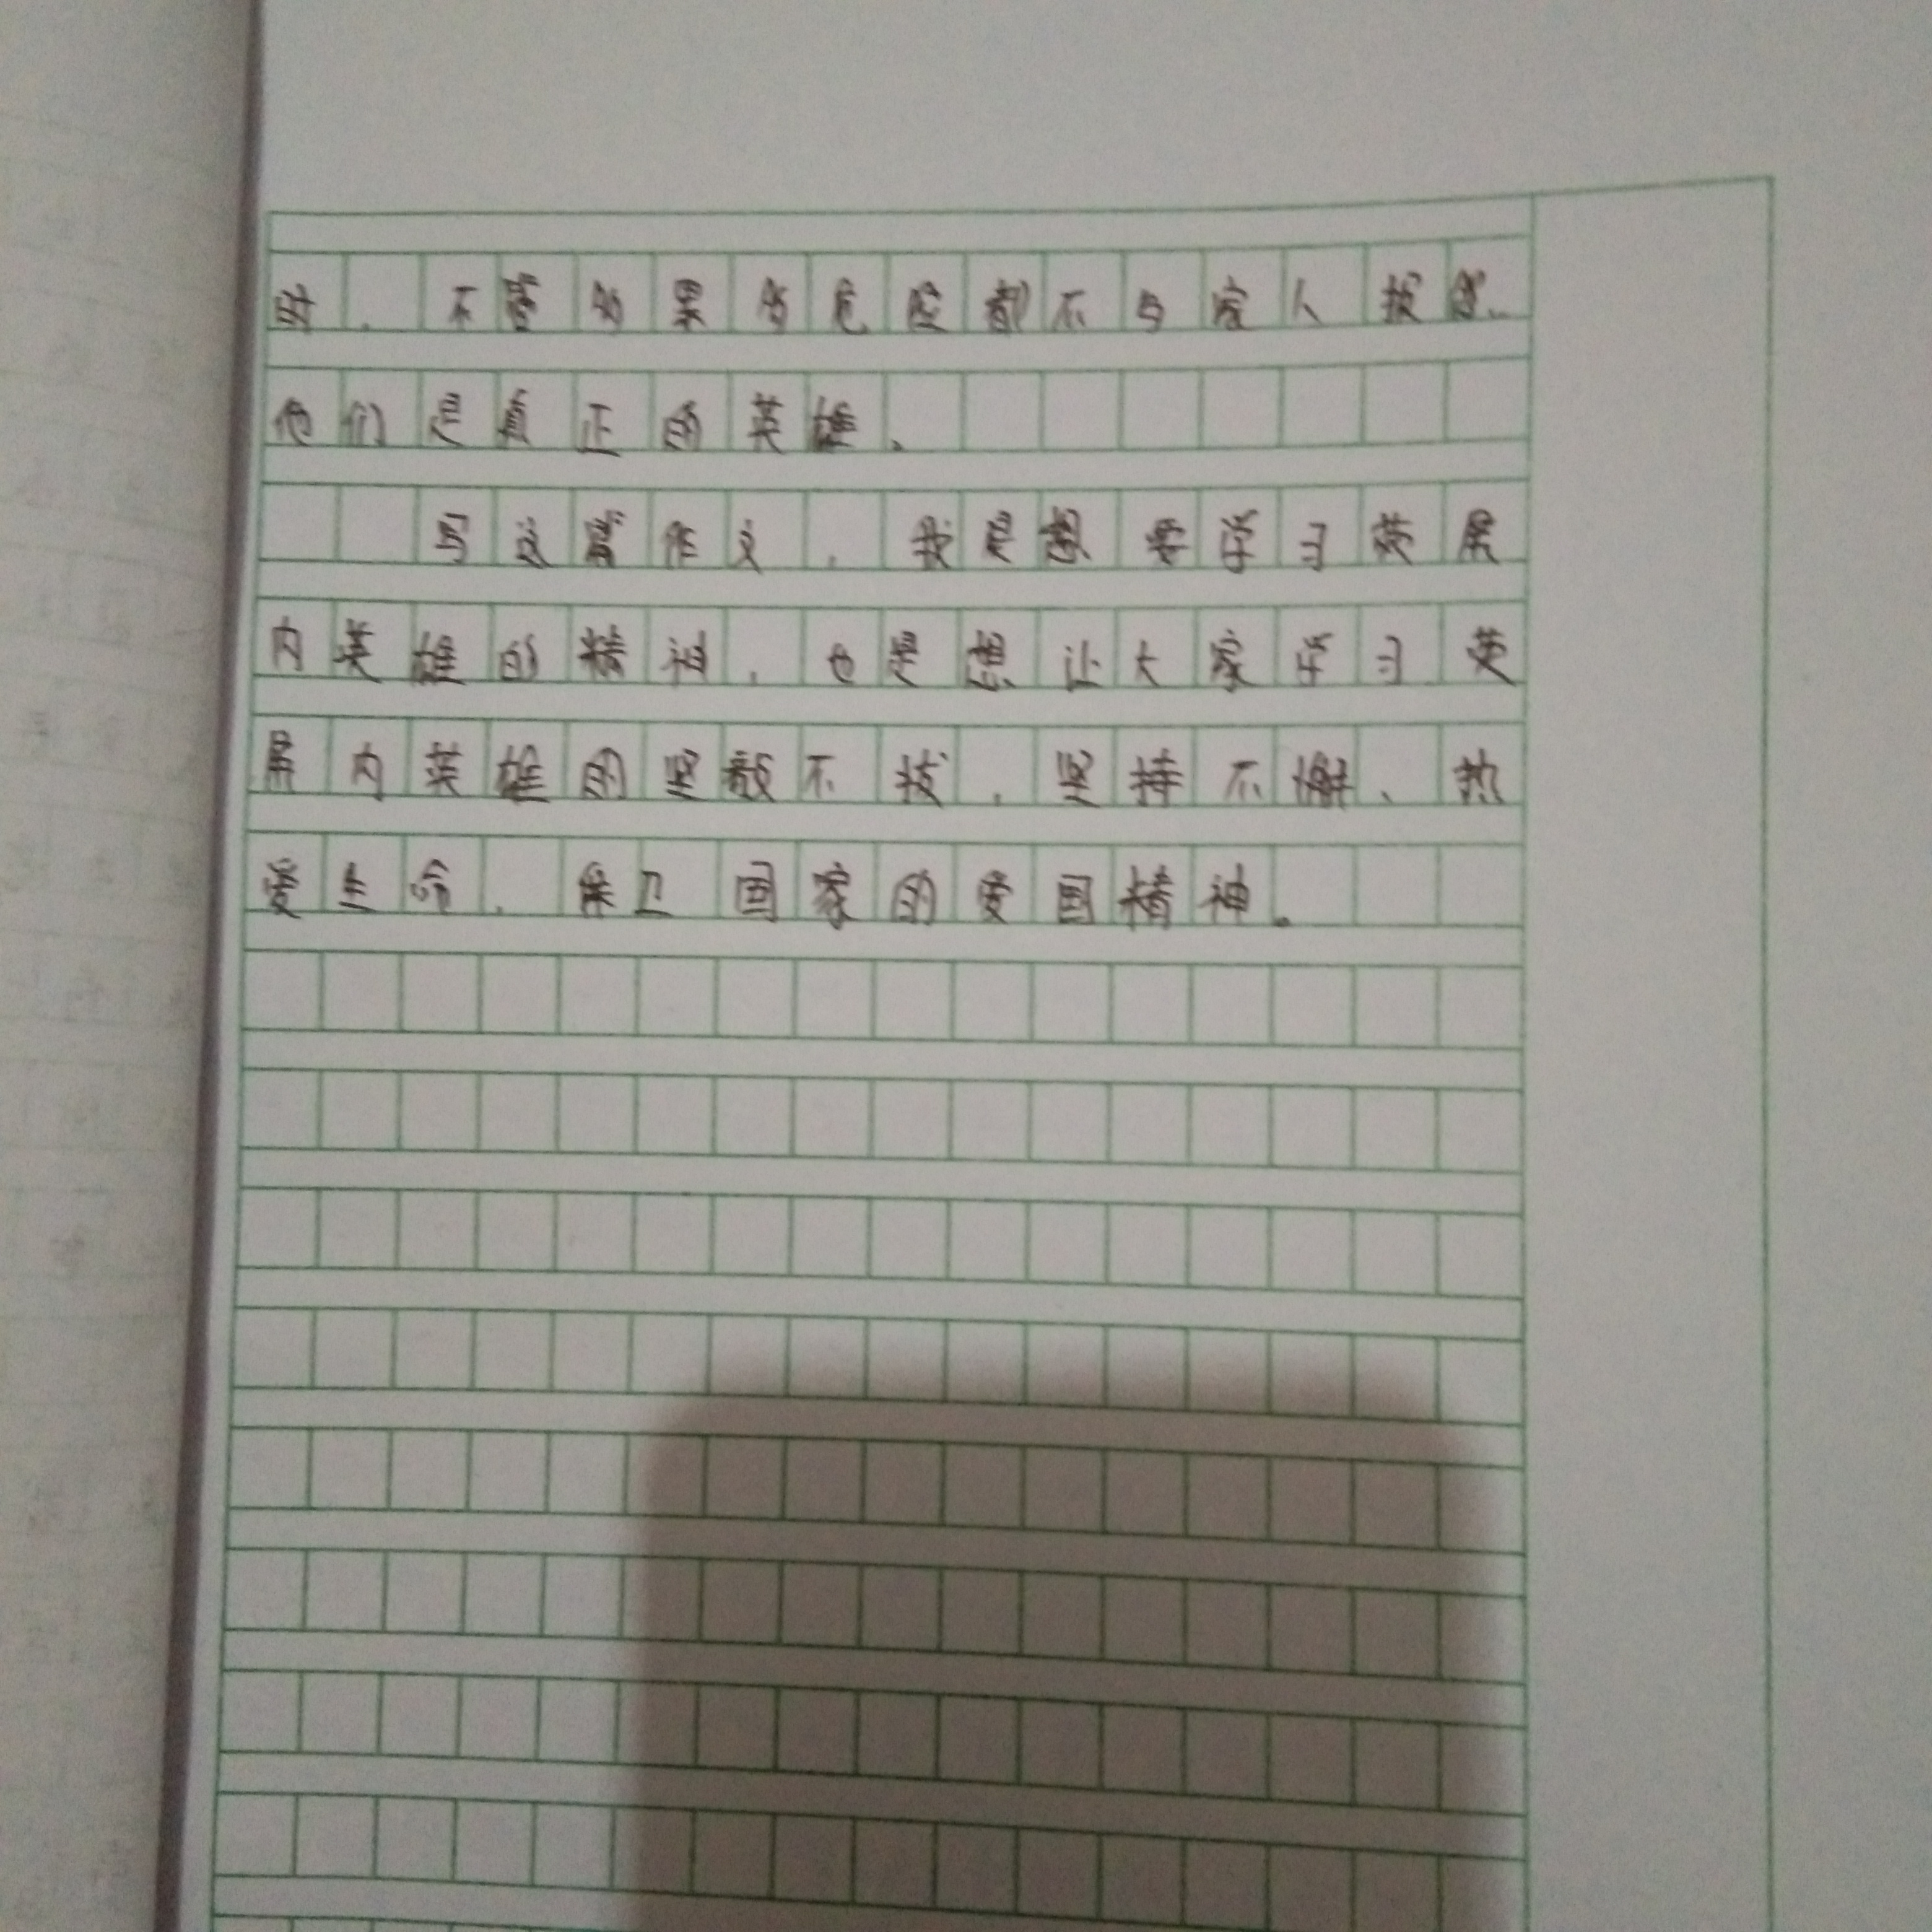 时，不管多累多危险都不与家人抱怨。
他们是真正的英雄。
写这篇作文，我是想要学习荧屏
内英雄的精神，也是想让大家学习荧
屏内英雄的坚毅不拔，坚持不懈、热
爱生命，保卫国家的爱国精神。